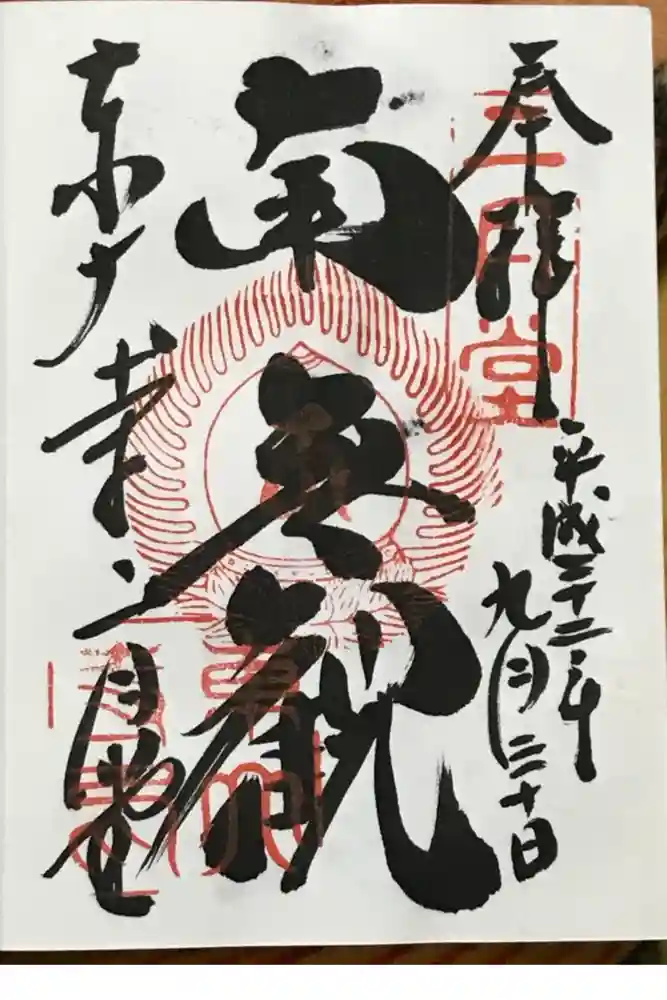 奉拝
二月堂
平成二十二年
九月二十日
南無観
東大寺二月堂